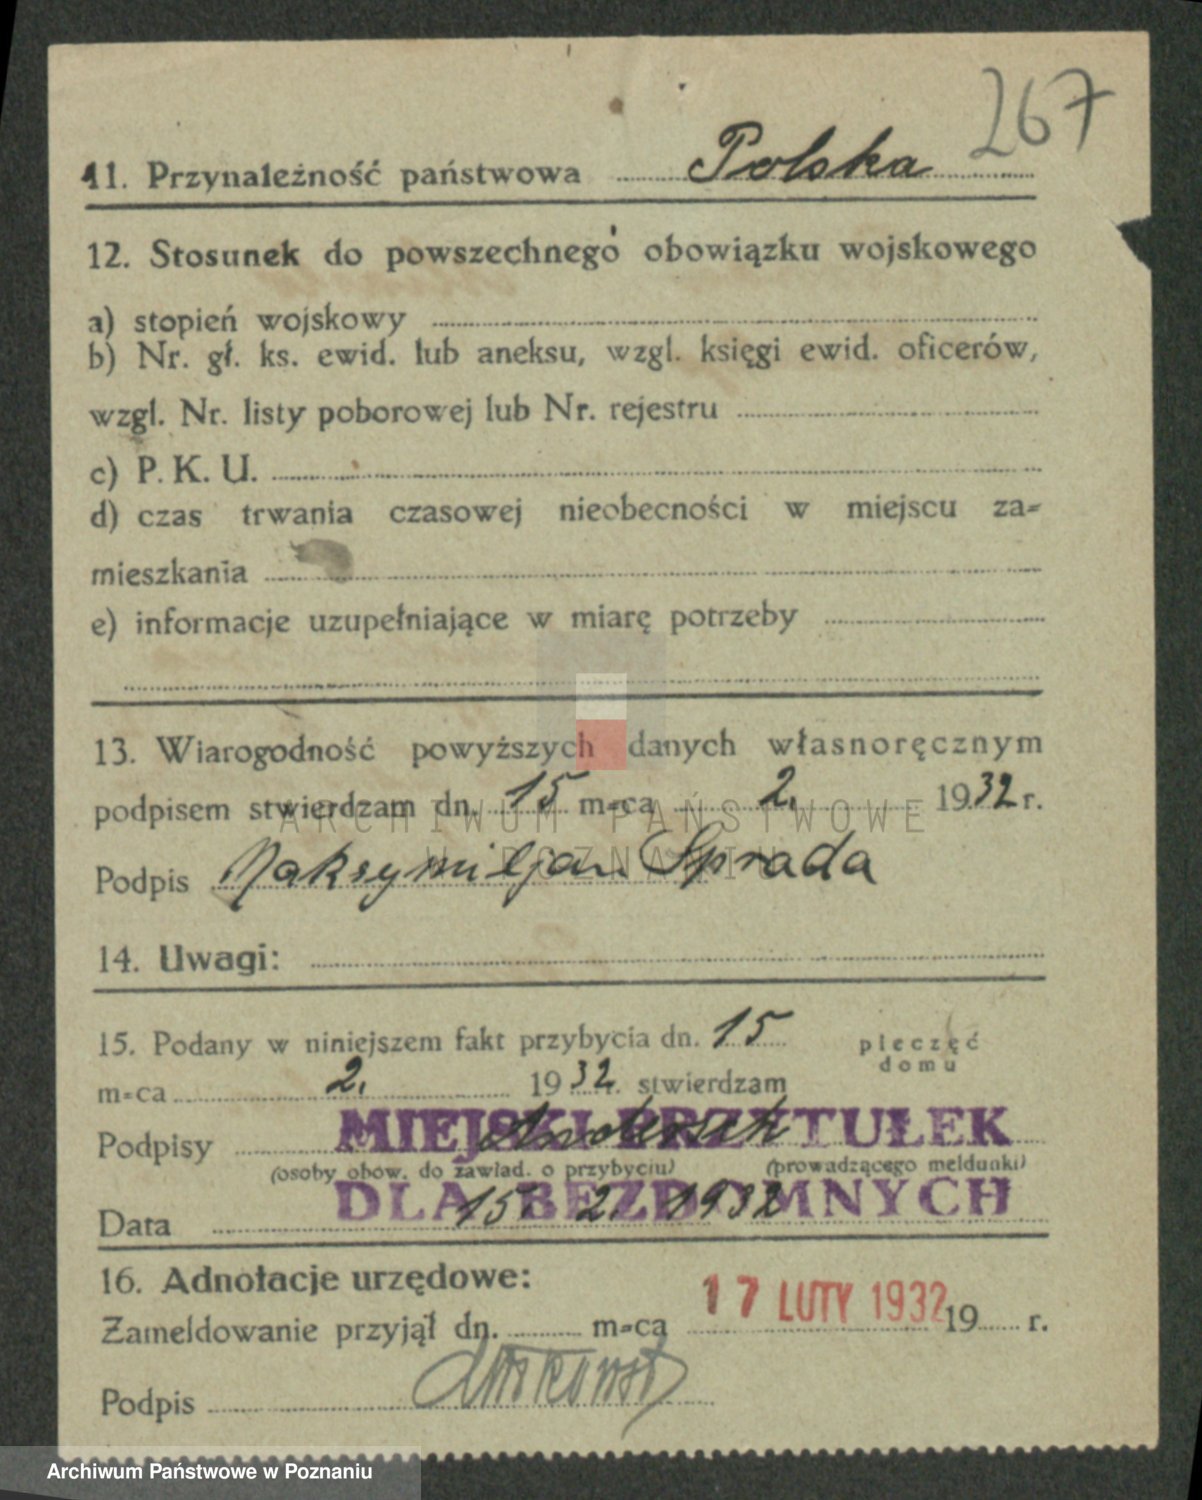 267
11. Przynależność państwowa Polska
12. Stosunek do powszechnego obowiązku wojskowego
a) stopień wojskowy
b) Nr. gł. ks. ewid. lub aneksu, wzgl. księgi ewid. oficerów,
wzgl. Nr. listy poborowej lub Nr. rejestru
c) P. K. U.
d) czas trwania czasowej nieobecności w miejscu za-
mieszkania
e) informacje uzupełniające w miarę potrzeby
13. Wiarogodność powyższych danych własnoręcznym
podpisem stwierdzam dn. 15 m-ca 2. 1932 r.
ARCHIWUM PAŃSTWOWE
W POZNANIU
Podpis Maksymiljan Sprada
14. Uwagi:
15. Podany w niniejszem fakt przybycia dn. 15
pieczęć
domu
m-ca 2. 1932 r. stwierdzam
MIEJSKI PRZYTUŁEK
Podpisy
(osoby obow. do zawiad. o przybyciu) (prowadzącego meldunki)
DLA BEZDOMNYCH
Data 15 2. 1932
16. Adnotacje urzędowe:
17 LUTY 1932
Zameldowanie przyjął dn. m-ca 19 r.
Podpis
Archiwum Państwowe w Poznaniu